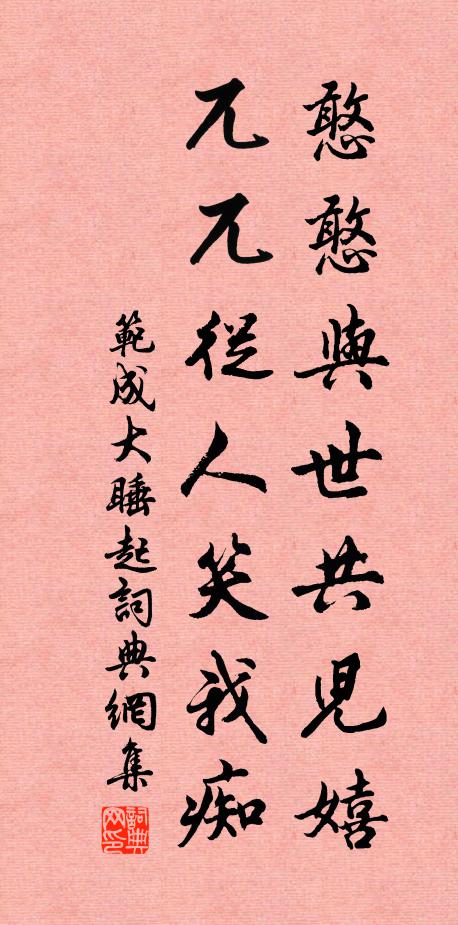 憨憨與世共兒嬉
兀兀從人笑我痴
範成大睡起詞典網集
詞典网印